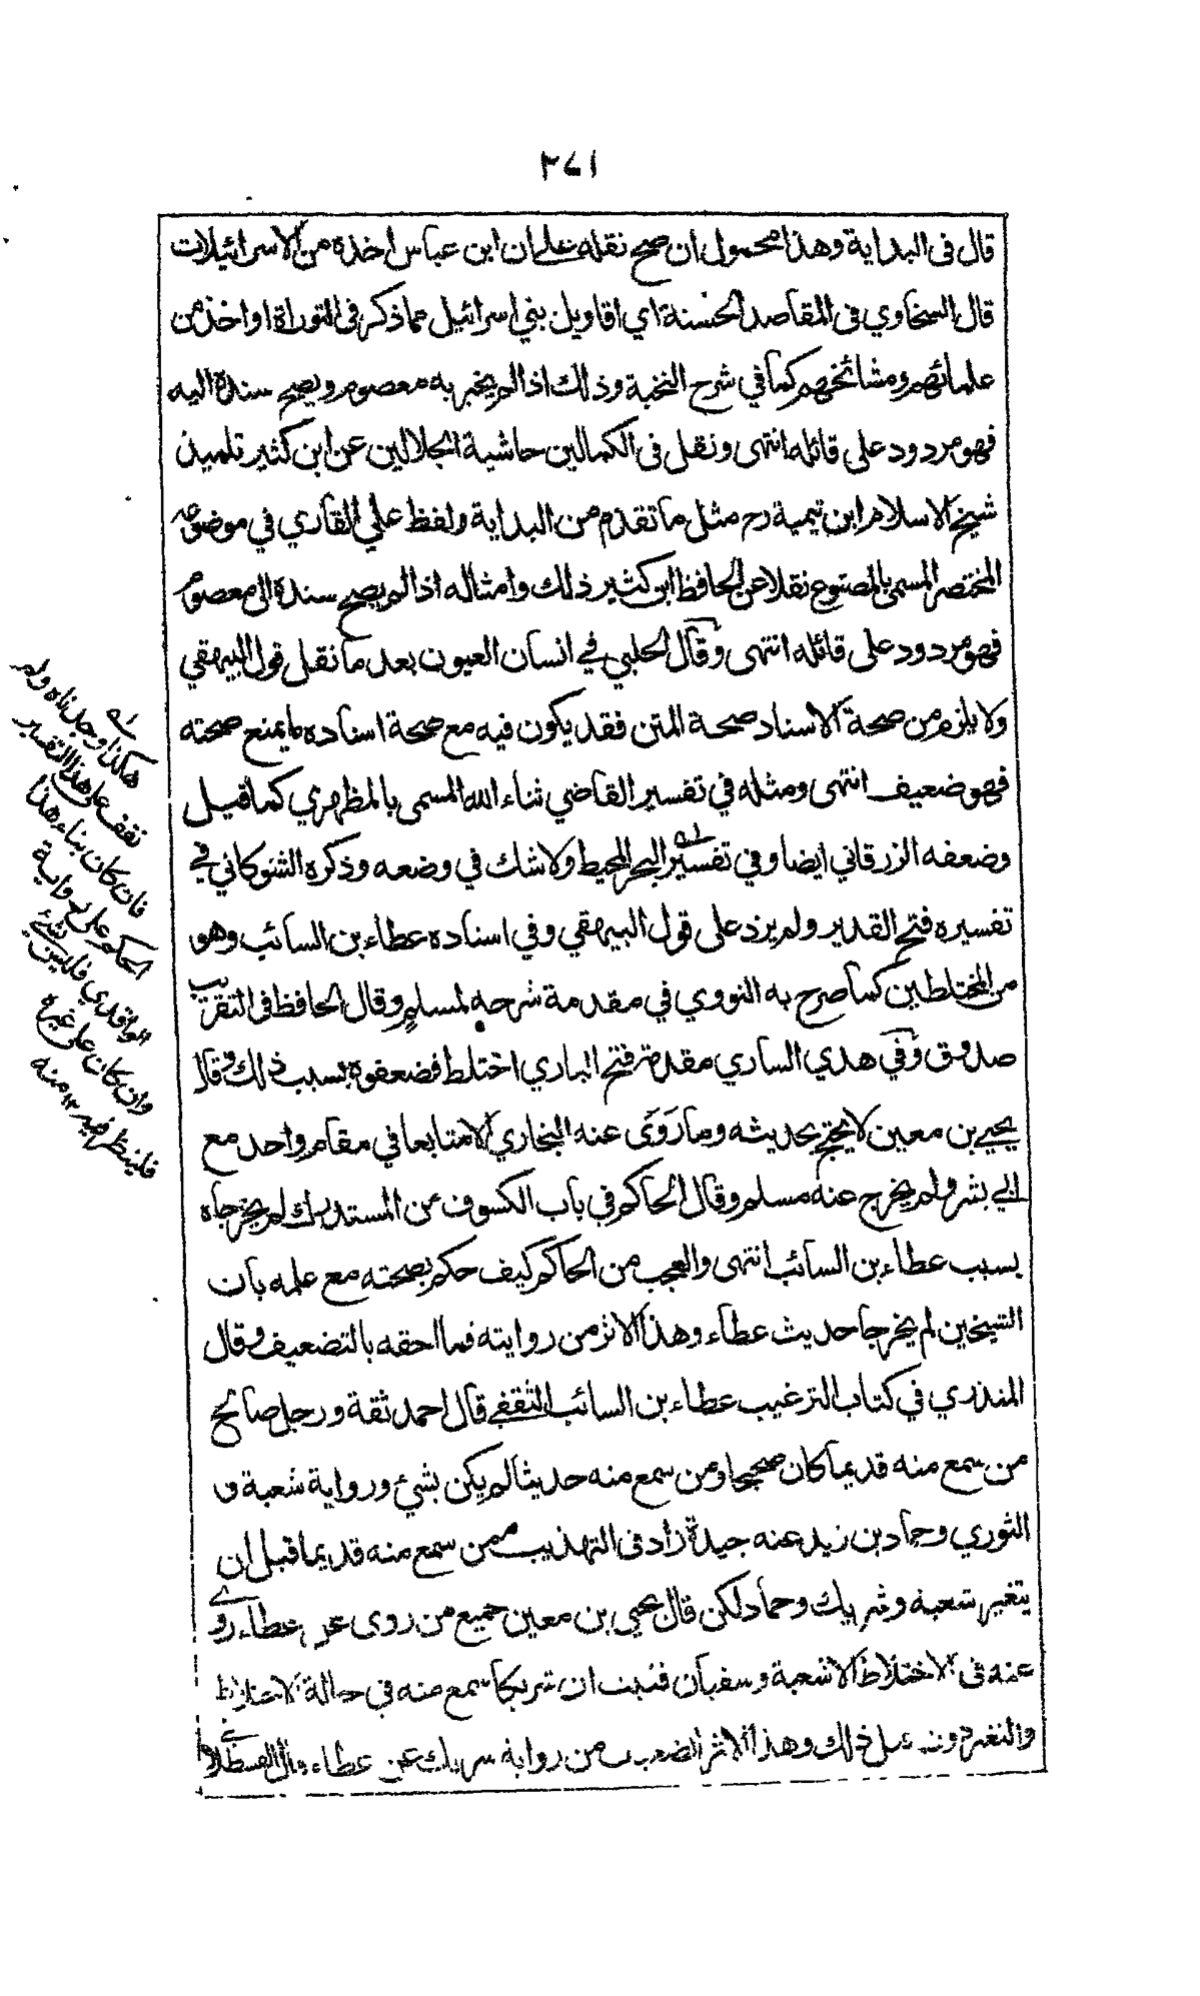 ٢٧١
قال في البداية وهذا محمول ان صح نقله على ان ابن عباس اخذه من الاسرائيلات
قال السخاوي في المقاصد الحسنة اي اقاويل بني اسرائيل مما ذكر في التوراة او اخذ من
علمائهم ومشائخهم كما في شرح النخبة وذلك اذا لم يخبر به معصوم ويصح سنده اليه
فهو مردود على قائله انتهى ونقل في الكمالين حاشية الجلالين عن ابن كثير تلميذ
شيخ الاسلام ابن تيمية رح مثل ما تقدم من البداية ولفظ علي القاري في موضوعه
المختصر المسمى بالمصنوع نقلا عن الحافظ ابن كثير ذلك وامثاله اذا لم يصح سنده الى معصوم
فهو مردود على قائله انتهى وقال الحلبي في انسان العيون بعد ما نقل قول البيهقي
ولا يلزم من صحة الاسناد صحة المتن فقد يكون فيه مع صحة اسناده ما يمنع صحته
فهو ضعيف انتهى ومثله في تفسير القاضي ثناء الله المسمى بالمظهري كما قيل
وضعفه الزرقاني ايضا وفي تفسير البحر المحيط ولا شك في وضعه وذكره الشوكاني في
تفسيره فتح القدير ولم يزد على قول البيهقي وفي اسناده عطاء بن السائب وهو
من المختلطين كما صرح به النووي في مقدمة شرحه لمسلم وقال الحافظ في التقريب
صدوق وفي هدي الساري مقدمة فتح الباري اختلط فضعفوه بسبب ذلك وقال
يحيي بن معين لا يحتج بحديثه وما روى عنه البخاري الا متابعا في مقام واحد مع
ابي بشر ولم يخرج عنه مسلم وقال الحاكم في باب الكسوف من المستدرك لم يخرجاه
بسبب عطاء بن السائب انتهى والعجب من الحاكم كيف حكم بصحته مع علمه بان
الشيخين لم يخرجا حديث عطاء وهذا الاثر من روايته فما احقه بالتضعيف وقال
المنذري في كتاب الترغيب عطاء بن السائب الثقفي قال احمد ثقة ورجل صالح
من سمع منه قديما كان صحيحا ومن سمع منه حديثا لم يكن بشئ ورواية شعبة و
الثوري وحماد بن زيد عنه جيدة زاد في التهذيب ممن سمع منه قديما قبل ان
يتغير شعبة وشريك وحماد لكن قال يحيى بن معين جميع من روى عن عطاء روي
عنه في الاختلاط الا شعبة وسفيان فثبت ان شريكا سمع منه في حالة الاختلاط
والتغير ذلك وهذا الاثر الضعيف من رواية شريك عن عطاء وقال القسطلاني
له
هكذا وجدناه ولم
نقف على هذا التفسير
فان كان بناء هذا
الحكم على رواية
الواقدي فليس بشئ
وان كان على غيره
فلينظر فيه ١٢ منه